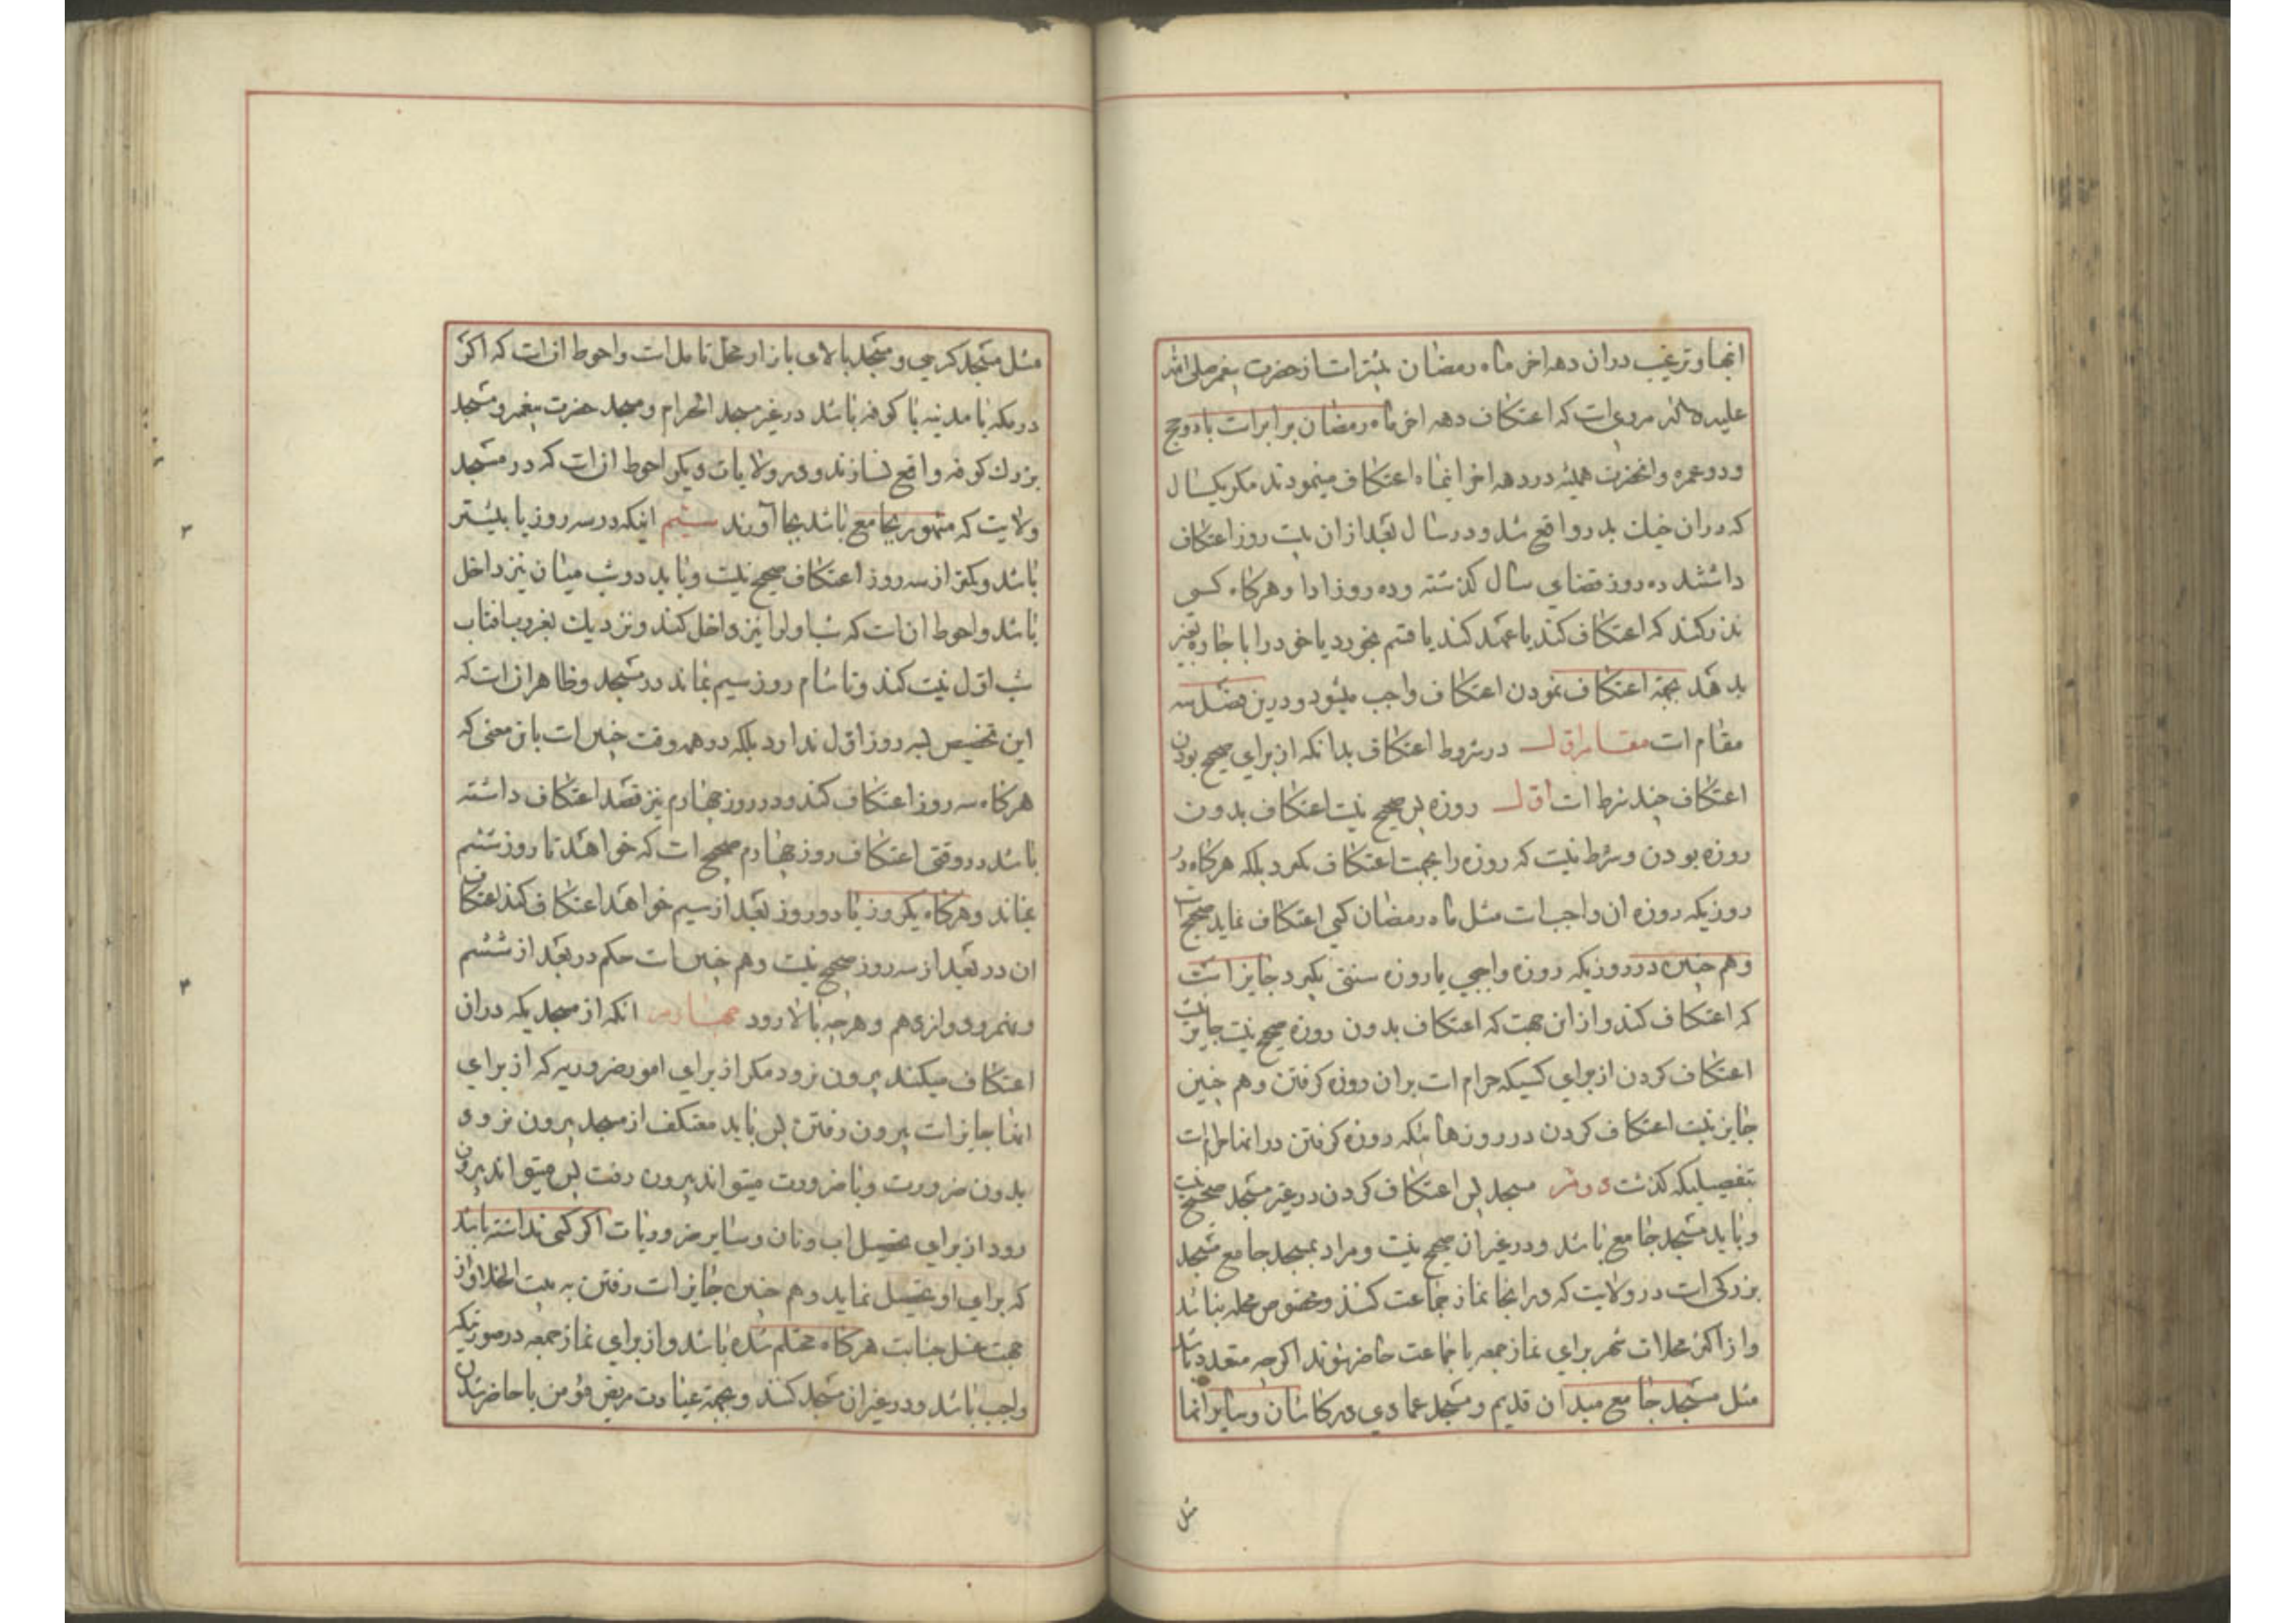 انها و ترغیب در ان دهه اخر ماه رمضان بیشتر است از حضرت پیغمبر صلی الله
علیه واله مروی است که اعتکاف دهه اخر ماه رمضان برابر است با دو حج
و دو عمره و انحضرت همیشه در دهه اخر انماه اعتکاف مینمودند مکر یکسال
که در ان جنك بدر واقع شد و در سال بعد از ان بیست روز اعتکاف
داشتند ده روز قضای سال کذشته و ده روز ادا و هرکاه کسی
نذر کند که اعتکاف کند یا عهد کند یا قسم بخورد یا خود را باجاره بغیر
بدهد بجهة اعتکاف نمودن اعتکاف واجب میشود و درین فصل سه
مقام است مقام اول در شروط اعتکاف بدانکه از برای صحیح بودن
اعتکاف چند شرط است اول روزه پس صحیح نیست اعتکاف بدون
روزه بودن و شرط نیست که روزه را بجهت اعتکاف بکیرد بلکه هرکاه در
روزیکه روزه ان واجب است مثل ماه رمضان کسی اعتکاف نماید صحیح است
و هم چنین در روزیکه روزه واجبی یا روزه سنتی بکیرد جایز است
که اعتکاف کند و از این جهت که اعتکاف بدون روزه صحیح نیست جایز نیست
اعتکاف کردن از برای کسیکه حرام است بران روزه کرفتن و هم چنین
جایز نیست اعتکاف کردن در روزهائیکه روزه کرفتن در انها حرام است
بتفصیلیکه کذشت دوم مسجد پس اعتکاف کردن در غیر مسجد صحیح نیست
و باید مسجد جامع باشد و در غیر ان صحیح نیست و مراد بمسجد جامع مسجد
بزرکی است در ولایت که در انجا نماز جماعت کنند و مخصوص محله نباشد
و از اکثر محلات شهر برای نماز جمعه یا جماعت حاضر شوند اکرچه متعدد باشد
مثل مسجد جامع میدان قدیم و مسجد عمادی در کاشان و سایر انها
مثل
مثل مسجد کرسی و مسجد بالای بازار محل تامل است و احوط ان است که اکر
در مکه یا مدینه یا کوفه باشد در غیر مسجد الحرام و مسجد حضرت پیغمبر و مسجد
بزرك کوفه واقع نسازند و در ولایات دیکر احوط ان است که در مسجد
ولایت که مشهور بجامع باشد بجا آورند سیم اینکه در سه روز یا بیشتر
باشد و کمتر از سه روز اعتکاف صحیح نیست و باید دو شب میان نیز داخل
باشد و احوط ان است که شب اول را نیز داخل کند و نزدیك بغروب افتاب
شب اول نیت کند و تا شام روز سیم بماند در مسجد و ظاهر ان است که
این تخصیص بسه روز اول ندارد بلکه در همه وقت چنین است باین معنی که
هرکاه سه روز اعتکاف کند و در روز چهارم نیز قصد اعتکاف داشته
باشد در وقتی اعتکاف روز چهارم صحیح است که خواهد تا روز ششم
بماند و هرکاه یکروز یا دو روز بعد از سیم خواهد اعتکاف کند اعتکاف
ان در بعد از سه روز صحیح نیست و هم چنین است حکم در بعد از ششم
و نهم و دوازدهم و هرچه بالا رود چهارم انکه از مسجدیکه در ان
اعتکاف میکند بیرون نرود مکر از برای امور ضروریه که از برای
انها جایز است بیرون رفتن پس باید معتکف از مسجد بیرون نرود
بدون ضرورت و با ضرورت میتواند بیرون رفت پس میتواند بیرون
رود از برای تحصیل اب و نان و سایر ضروریات اکر کسی نداشته باشد
که برای او تحصیل نماید و هم چنین جایز است رفتن به بیت الخلا و از
جهت غسل جنابت هرکاه محتلم شده باشد و از برای نماز جمعه در صورتیکه
واجب باشد و در غیر ان مسجد کنند و بجهة عیادت مریض مؤمن یا حاضر شدن
۳
۴